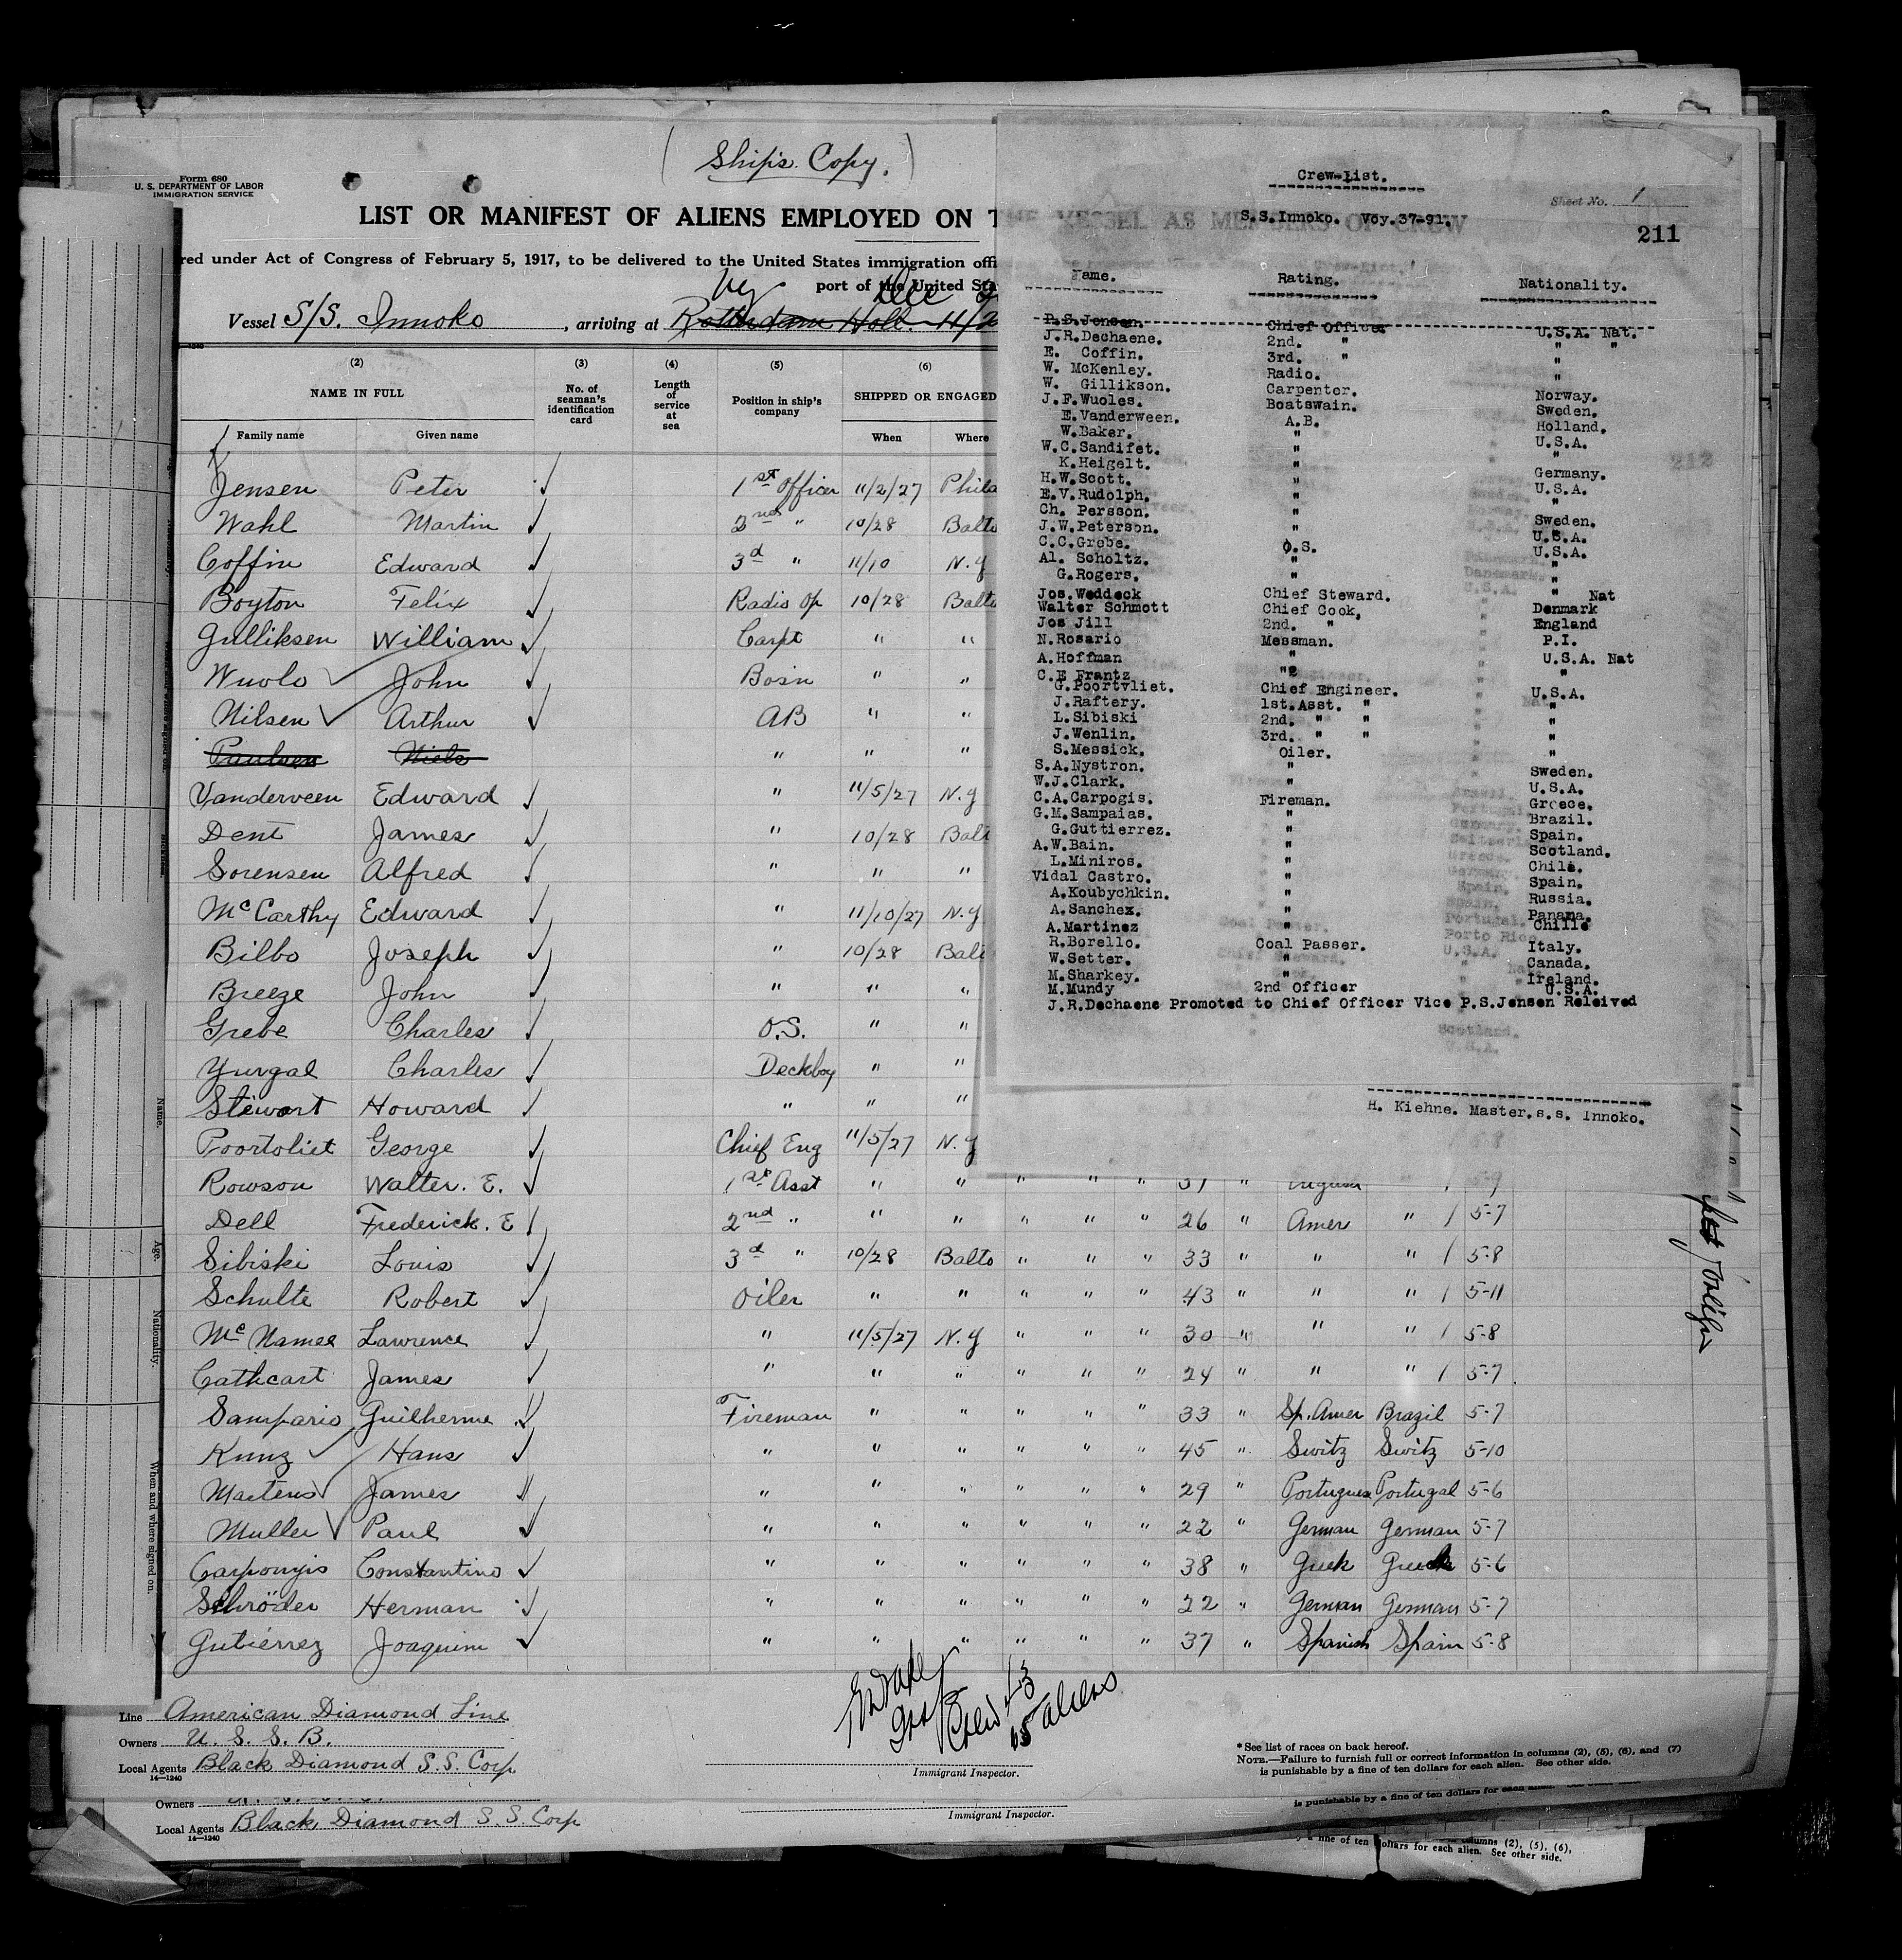 (Ship's Copy.)
Form 680
U. S. DEPARTMENT OF LABOR
IMMIGRATION SERVICE
LIST OR MANIFEST OF ALIENS EMPLOYED ON THE VESSEL AS MEMBERS OF CREW
red under Act of Congress of February 5, 1917, to be delivered to the United States immigration offi
port of the United Sta
Vessel S/S. Innoko, arriving at Rotterdam Holl. 11/2
Sheet No. 1
211
(2) (3) (4) (5) (6)
NAME IN FULL No. of seaman's identification card Length of service at sea Position in ship's company SHIPPED OR ENGAGED
Family name Given name When Where
Jensen Peter 1st Officer 11/2/27 Phila
Wahl Martin 2nd " 10/28 Balto
Coffin Edward 3d " 11/10 N.Y
Boyton Felix Radio Op 10/28 Balto
Gulliksen William Carpt " "
Wuolo John Bosn " "
Nilsen Arthur AB " "
Paulsen Niels " " "
Vanderveen Edward " 11/5/27 N.Y
Dent James " 10/28 Balt
Sorensen Alfred " " "
McCarthy Edward " 11/10/27 N.Y
Bilbo Joseph " 10/28 Balt
Breeze John " " "
Grebe Charles O.S. " "
Yurgal Charles Deckboy " "
Stewart Howard " " "
Poortvliet George Chief Eng 11/5/27 N.Y
Rowson Walter. E. 1st Asst " " " " " 37 "
Dell Frederick. E 2nd " " " " " " 26 " Amer " / 5-7
Sibiski Louis 3d " 10/28 Balto " " " 33 " " " / 5-8
Schulte Robert Oiler " " " " " 43 " " " / 5-11
McNamee Lawrence " 11/5/27 N.Y " " " 30 " " " / 5-8
Cathcart James " " " " " " 24 " " " / 5-7
Sampario Guilherme Fireman " " " " " 33 " Sp. Amer Brazil 5-7
Kunz Hans " " " " " " 45 " Switz Switz 5-10
Martens James " " " " " " 29 " Portugues Portugal 5-6
Muller Paul " " " " " " 22 " German German 5-7
Carponyis Constantino " " " " " " 38 " Greek Greek 5-6
Schröder Herman " " " " " " 22 " German German 5-7
Gutiérrez Joaquim " " " " " " 37 " Spanish Spain 5-8
Crew 43
15 aliens
Line American Diamond Line
Owners U. S. S. B.
Local Agents Black Diamond S.S. Corp
14—1240
Immigrant Inspector.
* See list of races on back hereof.
NOTE.—Failure to furnish full or correct information in columns (2), (5), (6), and (7)
is punishable by a fine of ten dollars for each alien. See other side.
Owners
Local Agents Black Diamond S.S. Corp
14—1240
Immigrant Inspector.
is punishable by a fine of ten dollars for each alien.
a fine of ten dollars for each alien. See other side.
Crew-List.
S.S.Innoko. Voy.37-91.
Name. Rating. Nationality.
P.S.Jensen. Chief Officer U.S.A. Nat.
J.R.Dechaene. 2nd. " " "
E. Coffin. 3rd. " "
W. McKenley. Radio. "
W. Gillikson. Carpenter. Norway.
J.F.Wuoles. Boatswain. Sweden.
E.Vanderween. A.B. Holland.
W.Baker. " U.S.A.
W.C.Sandifet. " "
K.Heigelt. " Germany.
H.W.Scott. " U.S.A.
E.V.Rudolph. " "
Ch. Persson. " Sweden.
J.W.Peterson. " U.S.A.
C.C.Grebe. O.S. U.S.A.
Al. Scholtz. " "
G.Rogers. " "
Jos.Weddeck Chief Steward. " Nat
Walter Schmott Chief Cook, Denmark
Jos Jill 2nd. " England
N.Rosario Messman. P.I.
A.Hoffman " U.S.A. Nat
C.E Frantz "2 "
G.Poortvliet. Chief Engineer. U.S.A.
J.Raftery. 1st.Asst. " "
L.Sibiski 2nd. " " "
J.Wenlin. 3rd. " " "
S.Messick. Oiler. "
S.A.Nystron. " Sweden.
W.J.Clark. " U.S.A.
C.A.Carpogis. Fireman. Greece.
G.M.Sampaias. " Brazil.
G.Guttierrez. " Spain.
A.W.Bain. " Scotland.
L.Miniros. " Chile.
Vidal Castro. " Spain.
A.Koubychkin. " Russia.
A.Sanchez. " Panama.
A.Martinez " Chille
R.Borello. Coal Passer. Italy.
W.Setter. " Canada.
M.Sharkey. " Ireland.
M.Mundy 2nd Officer U.S.A.
J.R.Dechaene Promoted to Chief Officer Vice P.S.Jensen Releived
H. Kiehne. Master.s.s. Innoko.
Name.
Age.
Nationality.
When and where signed on.